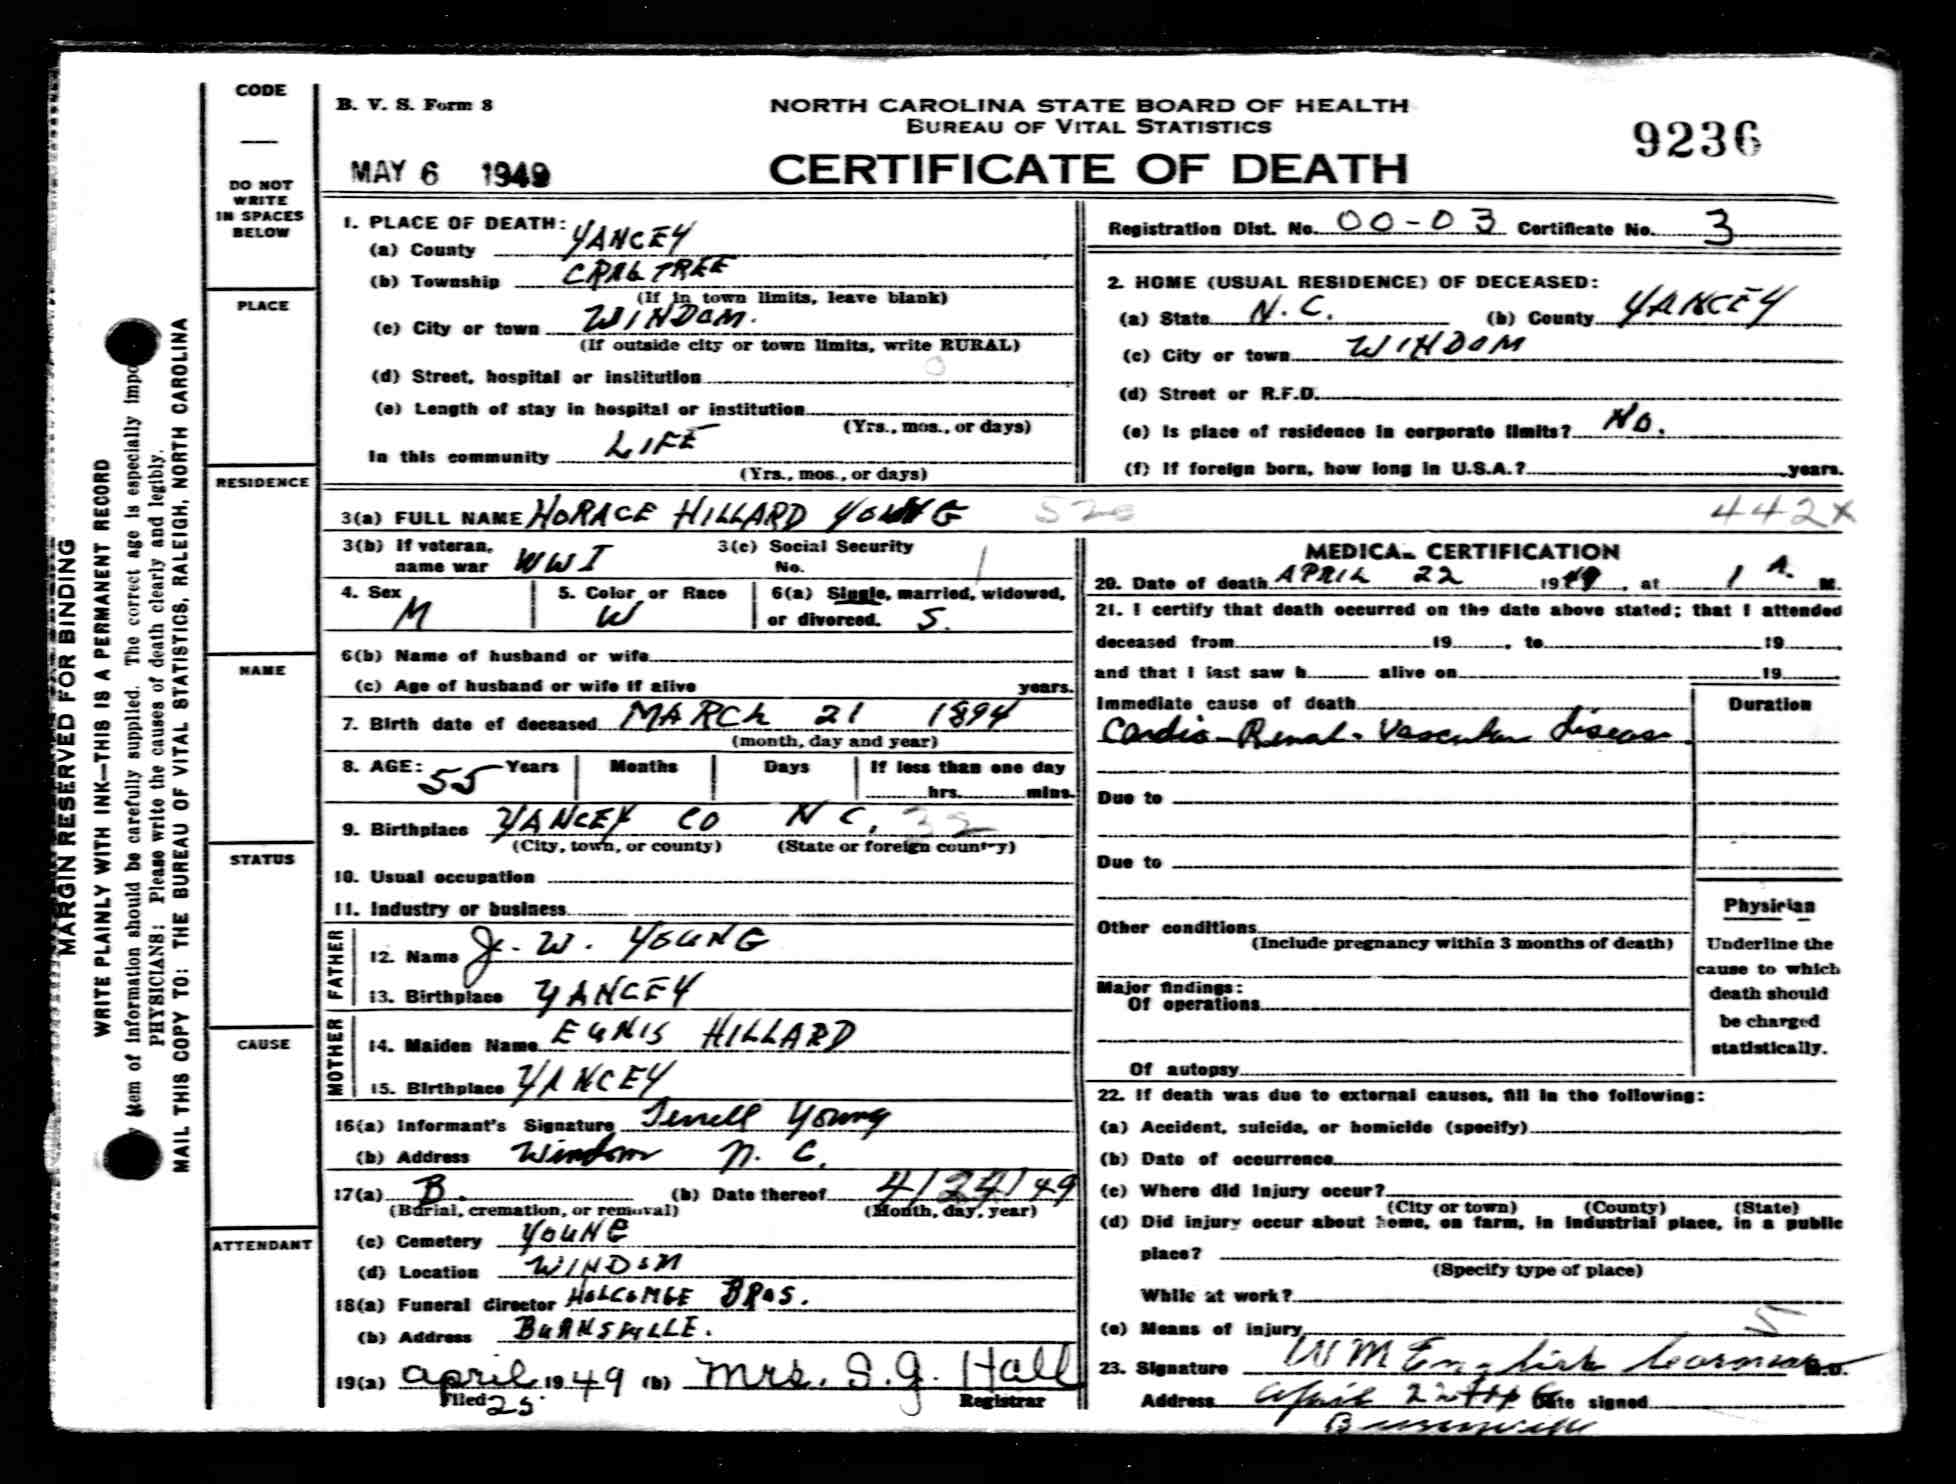 CODE
DO NOT
WRITE
IN SPACES
BELOW
PLACE
RESIDENCE
NAME
STATUS
CAUSE
ATTENDANT
MARGIN RESERVED FOR BINDING
WRITE PLAINLY WITH INK—THIS IS A PERMANENT RECORD
item of information should be carefully supplied. The correct age is especially impo
PHYSICIANS: Please write the causes of death clearly and legibly.
MAIL THIS COPY TO: THE BUREAU OF VITAL STATISTICS, RALEIGH, NORTH CAROLINA
B. V. S. Form 8
NORTH CAROLINA STATE BOARD OF HEALTH
BUREAU OF VITAL STATISTICS
CERTIFICATE OF DEATH
9236
MAY 6 1949
1. PLACE OF DEATH:
(a) County YANCEY
(b) Township CRABTREE
(If in town limits, leave blank)
(c) City or town WINDOM.
(If outside city or town limits, write RURAL)
(d) Street, hospital or institution
(e) Length of stay in hospital or institution
(Yrs., mos., or days)
In this community LIFE
(Yrs., mos., or days)
Registration Dist. No. 00-03 Certificate No. 3
2. HOME (USUAL RESIDENCE) OF DECEASED:
(a) State N.C. (b) County YANCEY
(c) City or town WINDOM
(d) Street or R.F.D.
(e) Is place of residence in corporate limits? NO.
(f) If foreign born, how long in U.S.A.? years.
3(a) FULL NAME HORACE HILLARD YOUNG 442X
3(b) If veteran, name war WWI 3(c) Social Security No.
4. Sex M 5. Color or Race W 6(a) Single, married, widowed, or divorced. S.
6(b) Name of husband or wife
(c) Age of husband or wife if alive years.
7. Birth date of deceased MARCH 21 1894
(month, day and year)
8. AGE: 55 Years Months Days If less than one day
hrs. mins.
9. Birthplace YANCEY CO N C. 32
(City, town, or county) (State or foreign country)
10. Usual occupation
11. Industry or business
FATHER
12. Name J. W. YOUNG
13. Birthplace YANCEY
MOTHER
14. Maiden Name EUNIS HILLARD
15. Birthplace YANCEY
16(a) Informant's Signature Terrell Young
(b) Address Windom N. C.
17(a) B. (b) Date thereof 4/24/49
(Burial, cremation, or removal) (Month, day, year)
(c) Cemetery YOUNG
(d) Location WINDOM
18(a) Funeral director HOLCOMBE BROS.
(b) Address BURNSVILLE.
19(a) april 1949 (b) Mrs. S.J. Hall
Filed 25 Registrar
MEDICAL CERTIFICATION
20. Date of death APRIL 22 1949, at 1 A. M.
21. I certify that death occurred on the date above stated; that I attended
deceased from 19 , to 19
and that I last saw h alive on 19
Immediate cause of death Duration
Cardio-Renal-Vascular disease
Due to
Due to
Other conditions
(Include pregnancy within 3 months of death)
Major findings:
Of operations
Of autopsy
Physician
Underline the
cause to which
death should
be charged
statistically.
22. If death was due to external causes, fill in the following:
(a) Accident, suicide, or homicide (specify)
(b) Date of occurrence
(c) Where did injury occur?
(City or town) (County) (State)
(d) Did injury occur about home, on farm, in industrial place, in a public
place?
(Specify type of place)
While at work?
(e) Means of injury
23. Signature W M English Coroner M.D.
Address April 22 Date signed
Burnsville